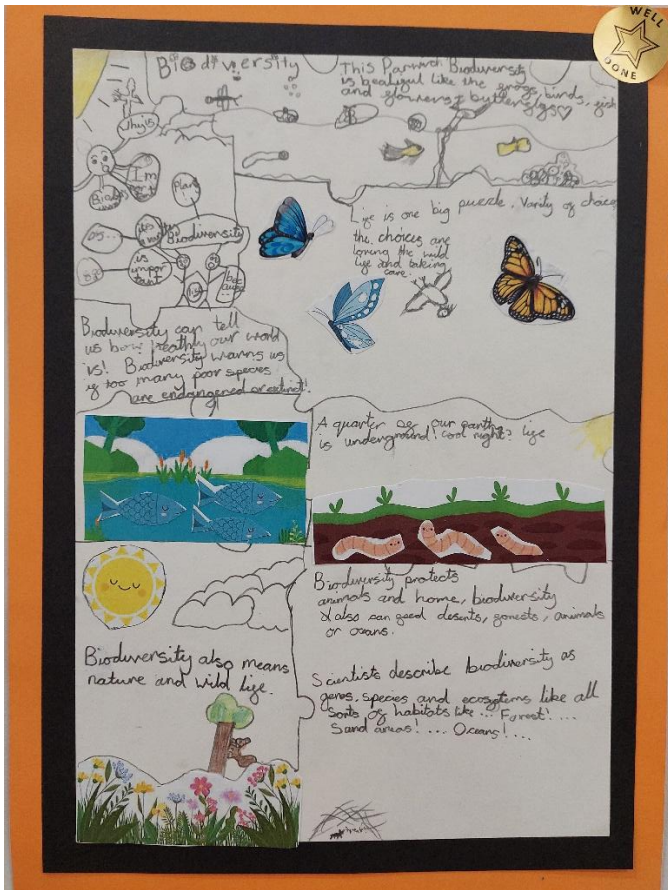 WELL DONE
Biodiversity
This Biodiversity
is beatiful like the frogs, birds, fish
and flowers & butterflys
Why is
Im
Plant
Biodiversity
is impor
tant
Life is one big puzzle. Varity of choices
the choices are
loving the wild
life and taking
care.
Biodiversity can tell
us how heathly our world
is! Biodiversity warns us
if too many poor species
are endangered or extinct!
A quarter of our earth
is underground! cool right? life
Biodiversity protects
animals and home, biodiversity
also can feed deserts, forests, animals
or oceans.
Biodiversity also means
nature and wild life.
Scientists describe biodiversity as
genes, species and ecosystems like all
sorts of habitats like ... Forest! ....
Sand areas! .... Oceans! ....